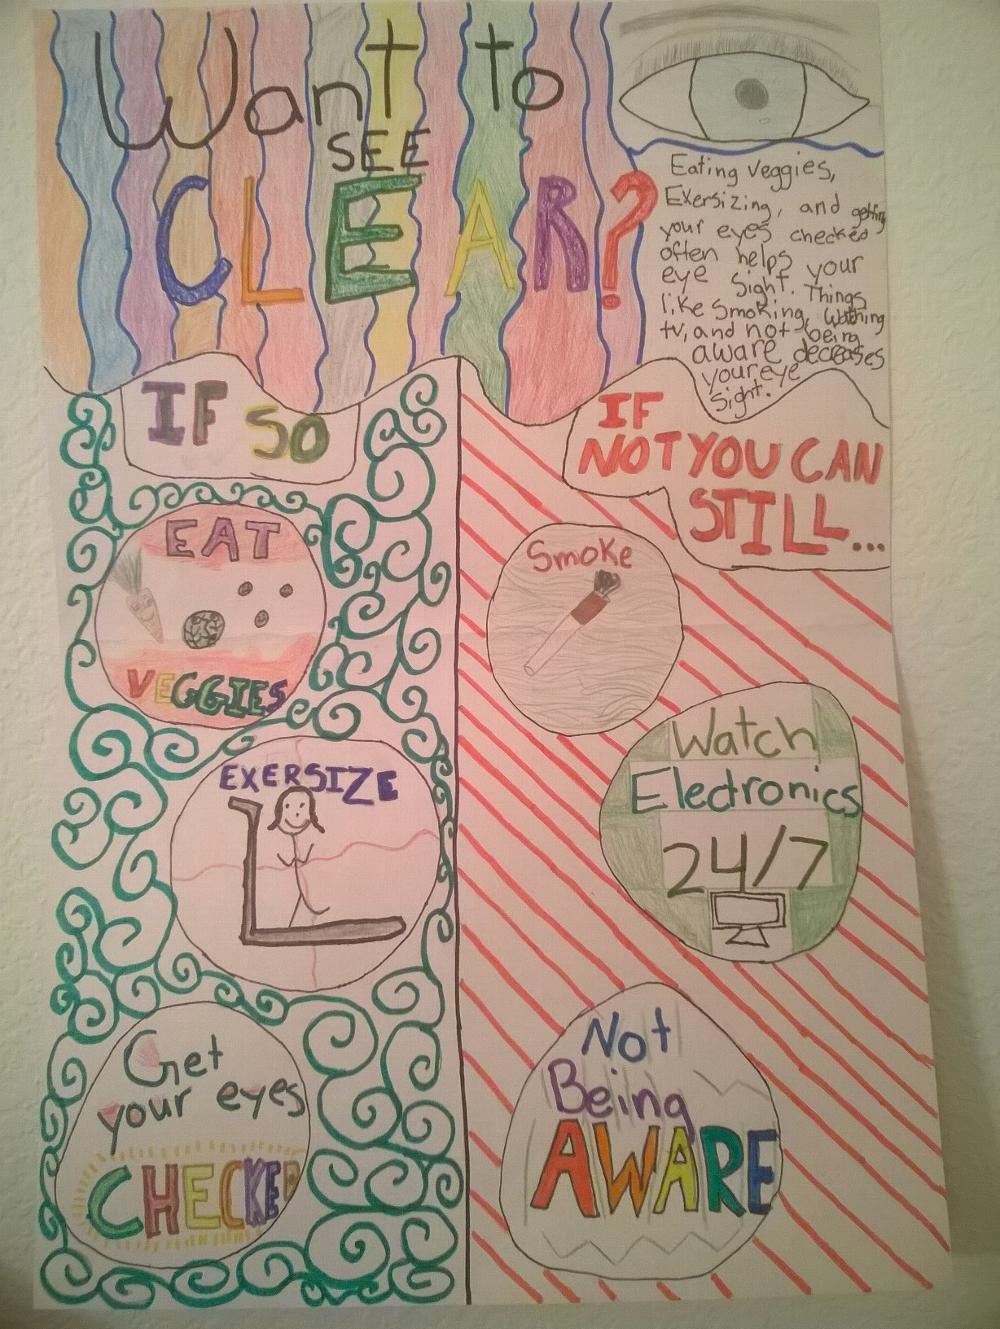 Want to
SEE
CLEAR?
Eating veggies,
Exersizing, and getting
your eyes checked
often helps your
eye sight. Things
like smoking, watching
tv, and not being
aware decreases
your eye
sight.
IF SO
EAT
VEGGIES
EXERSIZE
Get
your eyes
CHECKED
IF
NOT YOU CAN
STILL...
Smoke
Watch
Electronics
24/7
Not
Being
AWARE